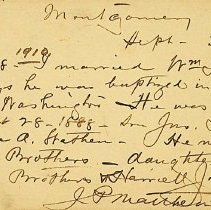 Montgomery
Sept.
8 1919, married Wm
ys he was baptized in
Washington — He was
t 28-1888 Son Jno.
e A. Stathen — He n
Brothers — daughte
Brothers & Harriett J
J. P. Matthew